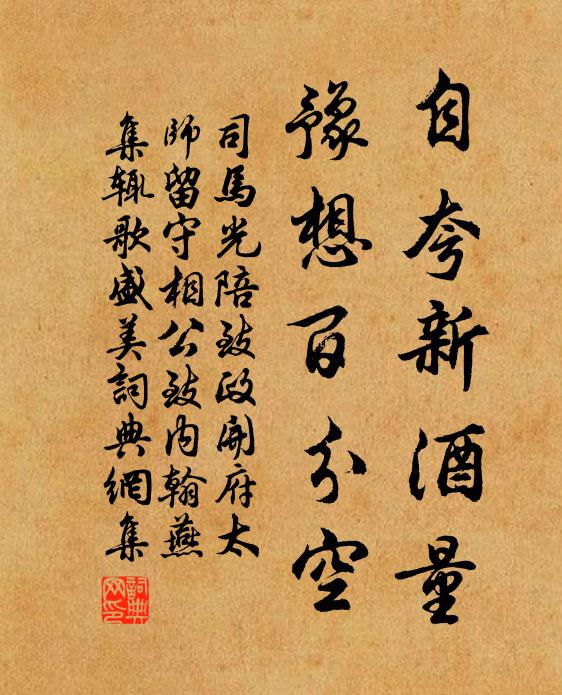 自夸新酒量
豫想百分空
司馬光陪致政開府太
師留守相公致内翰燕
集輒歌盛美詞典網集
詞典網印